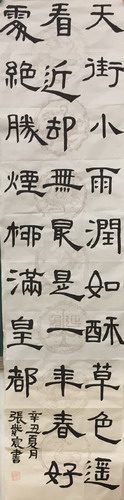 天街小雨潤如酥草色遙
看近却無最是一年春好
處絕勝煙柳滿皇都
辛丑夏月
張紫宸書